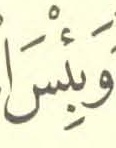 وَبِئْسَ ا